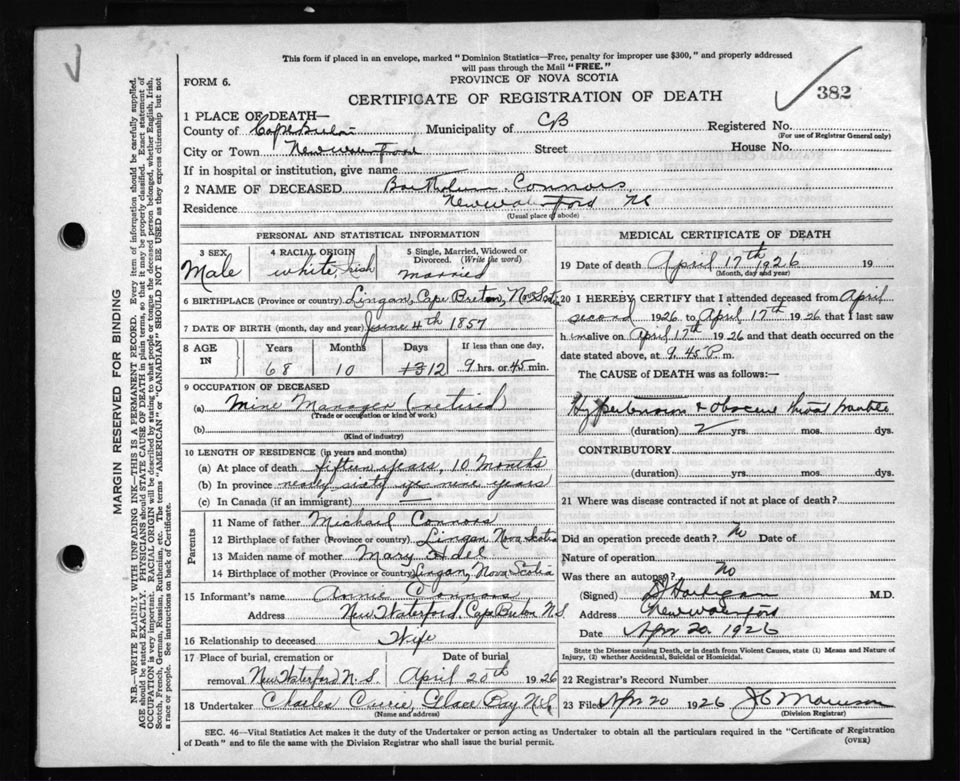 This form if placed in an envelope, marked "Dominion Statistics—Free, penalty for improper use $300," and properly addressed
will pass through the Mail "FREE."
FORM 6.
PROVINCE OF NOVA SCOTIA
CERTIFICATE OF REGISTRATION OF DEATH
382
1 PLACE OF DEATH—
County of Cape Breton Municipality of CB Registered No.
(For use of Registrar General only)
City or Town New Waterford Street House No.
If in hospital or institution, give name
2 NAME OF DECEASED Connors
Residence New Waterford NS
(Usual place of abode)
PERSONAL AND STATISTICAL INFORMATION
3 SEX 4 RACIAL ORIGIN 5 Single, Married, Widowed or Divorced. (Write the word)
Male white, Irish married
6 BIRTHPLACE (Province or country) Lingan, Cape Breton, Nova Scotia
7 DATE OF BIRTH (month, day and year) June 4th 1857
8 AGE IN Years Months Days If less than one day,
68 10 12 9 hrs. or 45 min.
9 OCCUPATION OF DECEASED
(a) Mine Manager (retired)
(Trade or occupation or kind of work)
(b)
(Kind of industry)
10 LENGTH OF RESIDENCE (in years and months)
(a) At place of death fifteen years, 10 Months
(b) In province nearly sixty nine years
(c) In Canada (if an immigrant)
Parents
11 Name of father Michael Connors
12 Birthplace of father (Province or country) Lingan Nova Scotia
13 Maiden name of mother Mary
14 Birthplace of mother (Province or country) Lingan, Nova Scotia
15 Informant's name Annie Connors
Address New Waterford, Cape Breton N.S.
16 Relationship to deceased Wife
17 Place of burial, cremation or removal New Waterford N.S. Date of burial April 20th 1926
18 Undertaker Charles Currie, Glace Bay N.S.
(Name and address)
MEDICAL CERTIFICATE OF DEATH
19 Date of death April 17th 1926 19
(Month, day and year)
20 I HEREBY CERTIFY that I attended deceased from April
second 1926 to April 17th 1926 that I last saw
him alive on April 17th 1926 and that death occurred on the
date stated above, at 9.45 P. m.
The CAUSE of DEATH was as follows:—
Hypertension & obscure throat trouble
(duration) 2 yrs. mos. dys.
CONTRIBUTORY
(duration) yrs. mos. dys.
21 Where was disease contracted if not at place of death?
Did an operation precede death? No Date of
Nature of operation
Was there an autopsy? No
(Signed) M.D.
Address New Waterford
Date Apr 20. 1926
State the Disease causing Death, or in death from Violent Causes, state (1) Means and Nature of
Injury, (2) whether Accidental, Suicidal or Homicidal.
22 Registrar's Record Number
23 Filed Apr 20 1926
(Division Registrar)
SEC. 46—Vital Statistics Act makes it the duty of the Undertaker or person acting as Undertaker to obtain all the particulars required in the "Certificate of Registration
of Death" and to file the same with the Division Registrar who shall issue the burial permit.
(OVER)
MARGIN RESERVED FOR BINDING
N.B.—WRITE PLAINLY WITH UNFADING INK—THIS IS A PERMANENT RECORD. Every item of information should be carefully supplied.
AGE should be stated EXACTLY. PHYSICIANS should STATE CAUSE OF DEATH in plain terms, so that it may be properly classified. Exact statement of
OCCUPATION is very important. RACIAL ORIGIN will be described by stating to what people or tongue the deceased person belonged, whether English, Irish,
Scotch, French, German, Russian, Ruthenian, etc. The terms "AMERICAN" or "CANADIAN" SHOULD NOT BE USED as they express citizenship but not
a race or people. See instructions on back of Certificate.